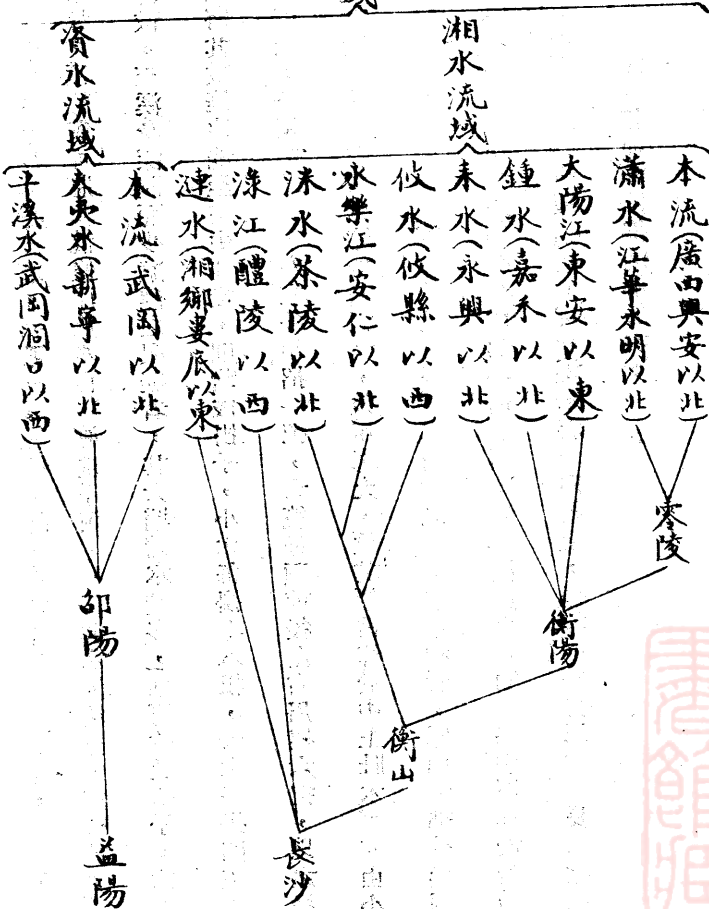 湘水流域
本流(廣西興安以北)
瀟水(江華永明以北)
大陽江(東安以東)
鍾水(嘉禾以北)
耒水(永興以北)
攸水(攸縣以西)
永樂江(安仁以北)
洣水(茶陵以北)
淥江(醴陵以西)
漣水(湘鄉婁底以東)
零陵
衡陽
衡山
長沙
資水流域
本流(武岡以北)
夫夷水(新寧以北)
平溪水(武岡洞口以西)
邵陽
益陽